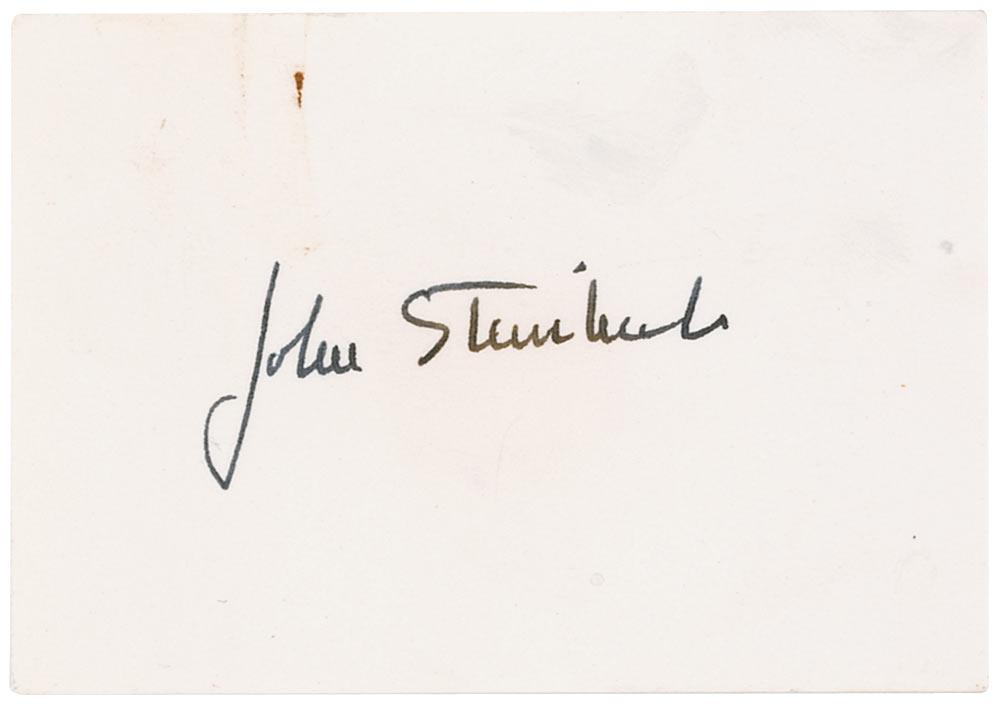 John Steinbeck